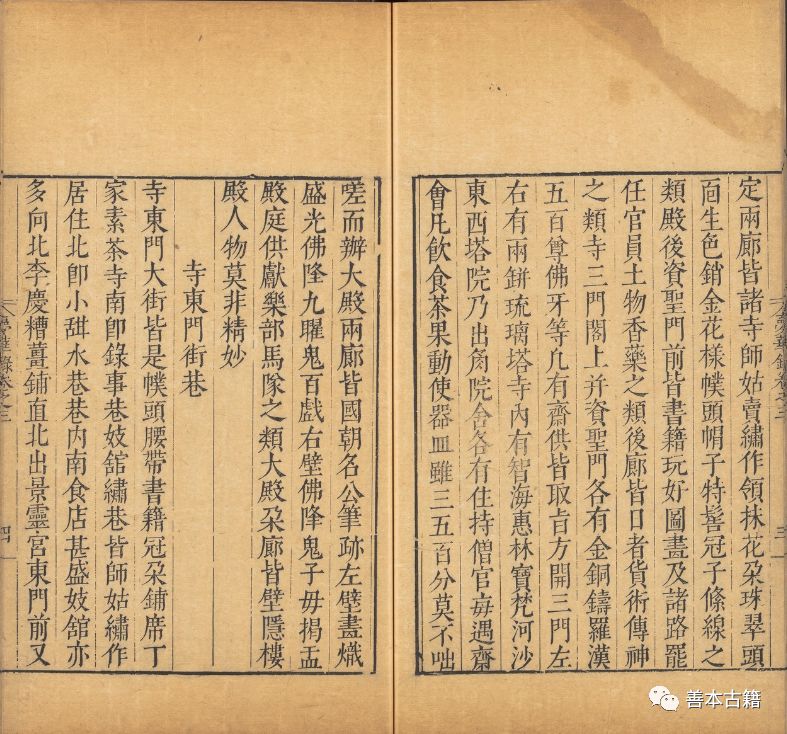 定兩廊皆諸寺師姑賣繡作領抹花朶珠翠頭
面生色銷金花樣幞頭帽子特髻冠子絛線之
類殿後資聖門前皆書籍玩好圖畫及諸路罷
任官員土物香藥之類後廊皆日者貨術傳神
之類寺三門閣上并資聖門各有金銅鑄羅漢
五百尊佛牙等凡有齋供皆取旨方開三門左
右有兩缾琉璃塔寺內有智海惠林寶梵河沙
東西塔院乃出角院舍各有住持僧官每遇齋
會凡飲食茶果動使器皿雖三五百分莫不咄
嗟而辦大殿兩廊皆國朝名公筆跡左壁畫熾
盛光佛降九曜鬼百戲右壁佛降鬼子母揭盂
殿庭供獻樂部馬隊之類大殿朶廊皆壁隱樓
殿人物莫非精妙
寺東門街巷
寺東門大街皆是幞頭腰帶書籍冠朶鋪席丁
家素茶寺南卽錄事巷妓舘繡巷皆師姑繡作
居住北卽小甜水巷巷內南食店甚盛妓舘亦
多向北李慶糟薑鋪直北出景靈宮東門前又
三
四
善本古籍